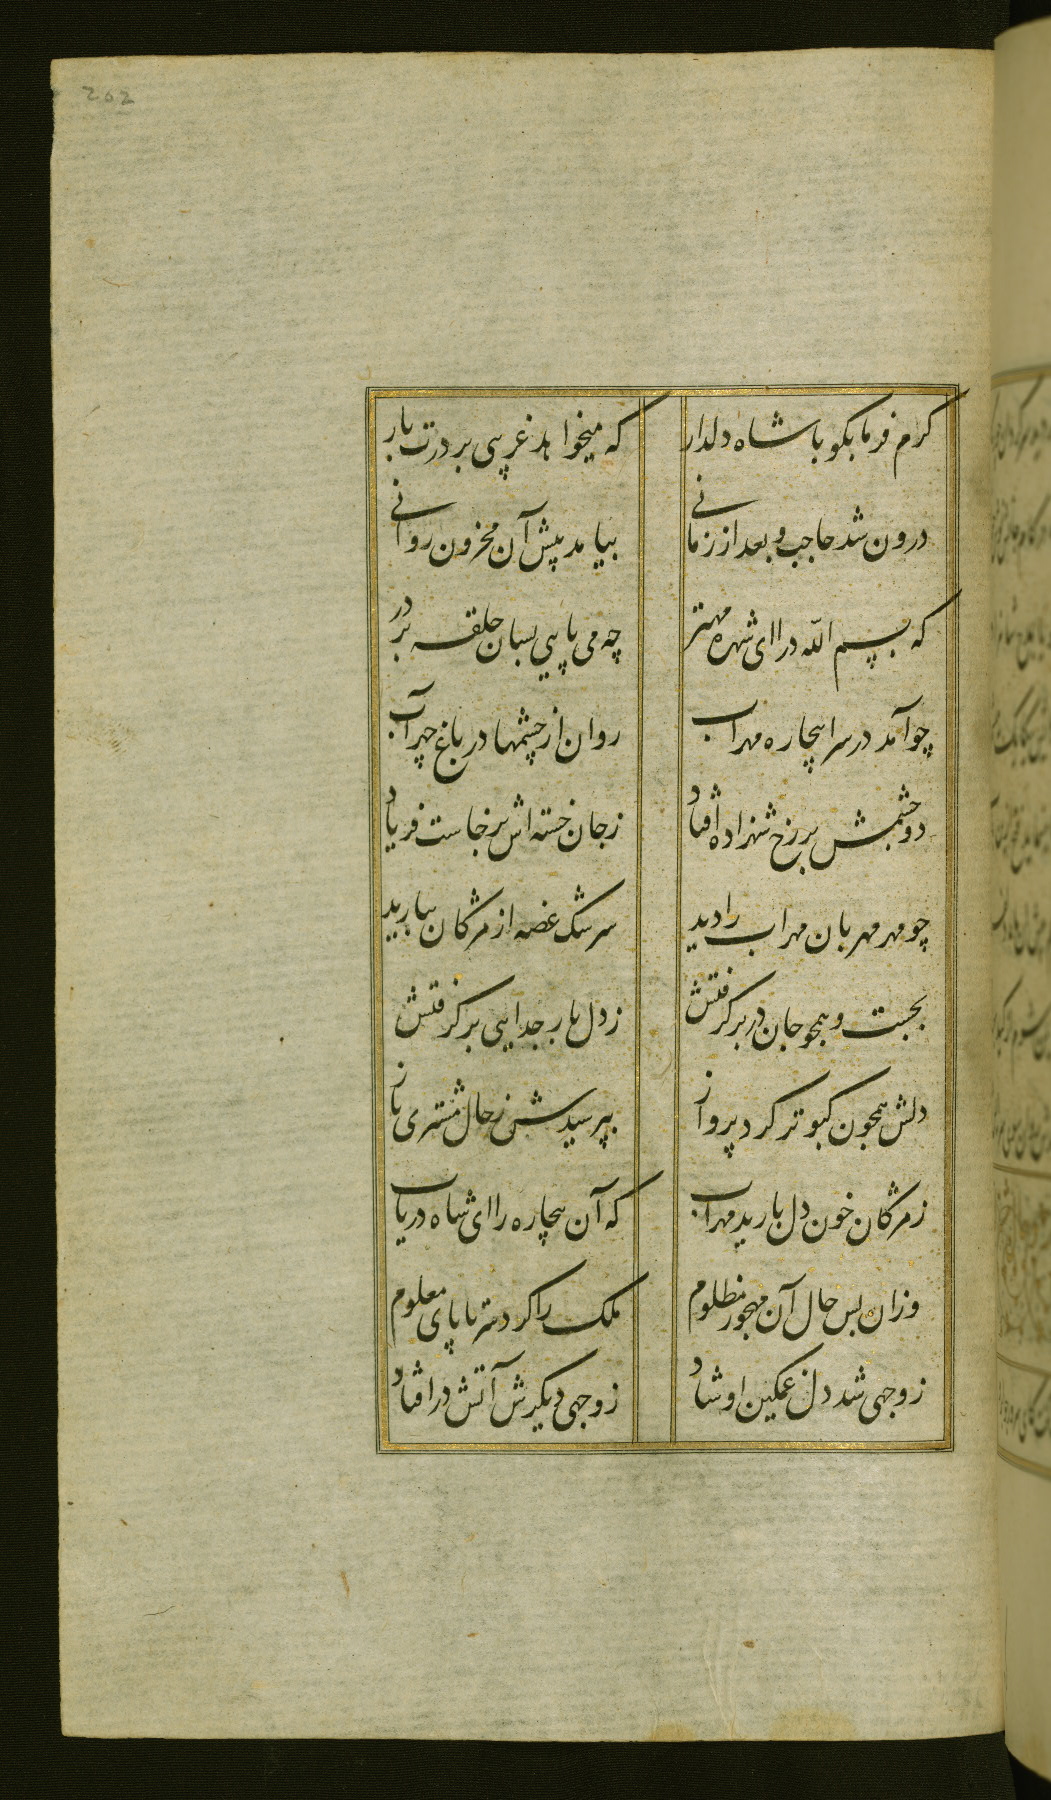 202
کرم فرما بگو با شاه دلدار که میخواهد غریبی بر درت بار
درون شد حاجب و بعد از زمانی بیامد پیش آن محزون روانی
که بسم الله درا ای شهره مهتر چه می پایی بسان حلقه بر در
چو آمد در سرا بیچاره مهراب روان از چشمها در باغ چهر آب
دو چشمش بر رخ شهزاده افتاد ز جان خسته اش برخاست فریاد
چو مهر مهربان مهراب را دید سرشک غصه از مژگان ببارید
بجست و همچو جان در بر گرفتش ز دل بار جدایی بر گرفتش
دلش همچون کبوتر کرد پرواز بپرسیدش ز حال مشتری باز
ز مژگان خون دل بارید مهراب که آن بیچاره را ای شاه دریاب
وزان بس حال آن مهجور مظلوم ملک را کرد سر تا پای معلوم
ز وجهی شد دل غمگین او شاد ز وجهی دیگرش آتش در افتاد